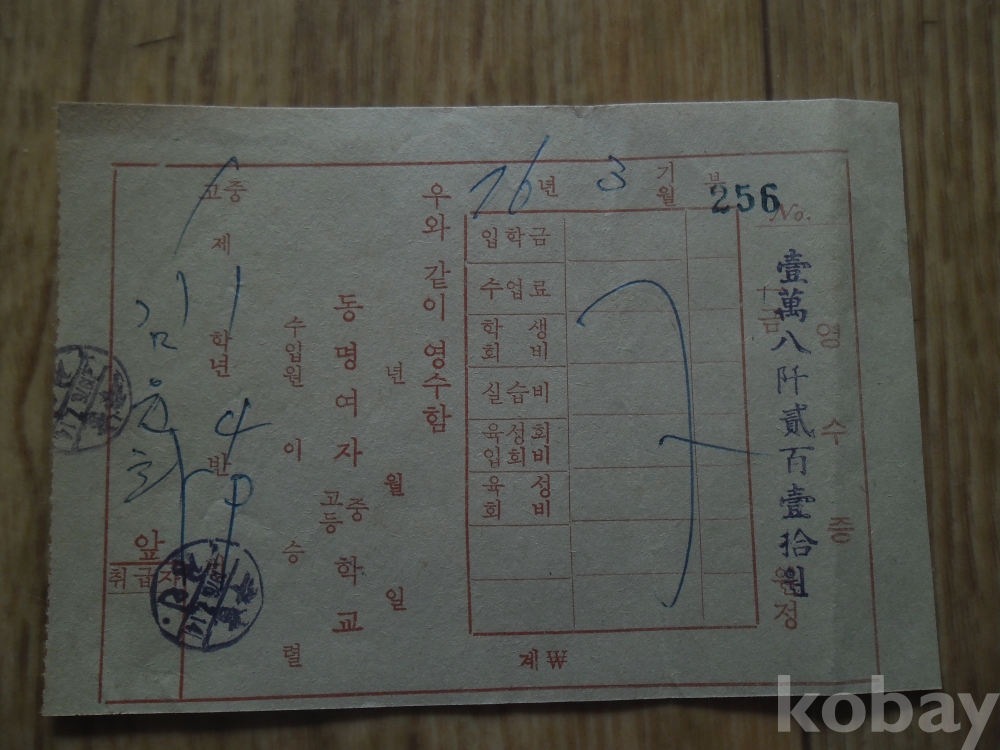 영수증
No. 256
금 壹萬八阡貳百壹拾원정
76년 3 기 월 분
입학금
수업료
학생회비
실습비
육성회입회비
육성회비
계 ₩
우와 같이 영수함
년 월 일
동명여자 중 고등 학교
수입원 이승렬
중 고 제 1 학년 4 반
김윤희 앞
취급자
kobay